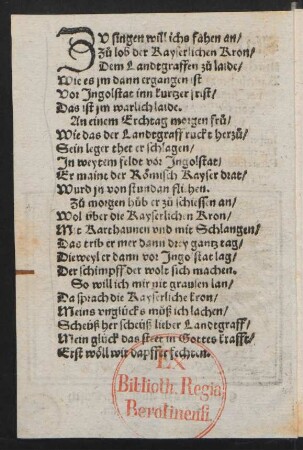 ZU singen will ichs fahen an/
Zů lob der Kayserlichen Kron/
Dem Landtgraffen zů laide/
Wie es jm dann ergangen ist
Vor Ingolstat inn kurtzer frist/
Das ist jm warlich laide.
An einem Erchtag morgen frů/
Wie das der Landtgraff ruckt herzů/
Sein leger thet er schlagen/
In weytem feldt vor Ingolstat/
Er maint der Römisch Kayser drat/
Wurd jn von stundan fliehen.
Zů morgen hůb er zů schiessen an/
Wol über die Kayserlichen Kron/
Mit Karthaunen vnd mit Schlangen/
Das trib er mer dann drey gantz tag/
Dieweyl er dann vor Ingolstat lag/
Der schimpff der wolt sich machen.
So will ich mir nit grausen lan/
Da sprach die Kayserliche kron/
Meins vnglücks můß ich lachen/
Scheüß her scheüß lieber Landtgraff/
Mein glück das stett in Gottes krafft/
Erst wöll wir dapffer fechten.
EX
Biblioth. Regia
Berolinensi.